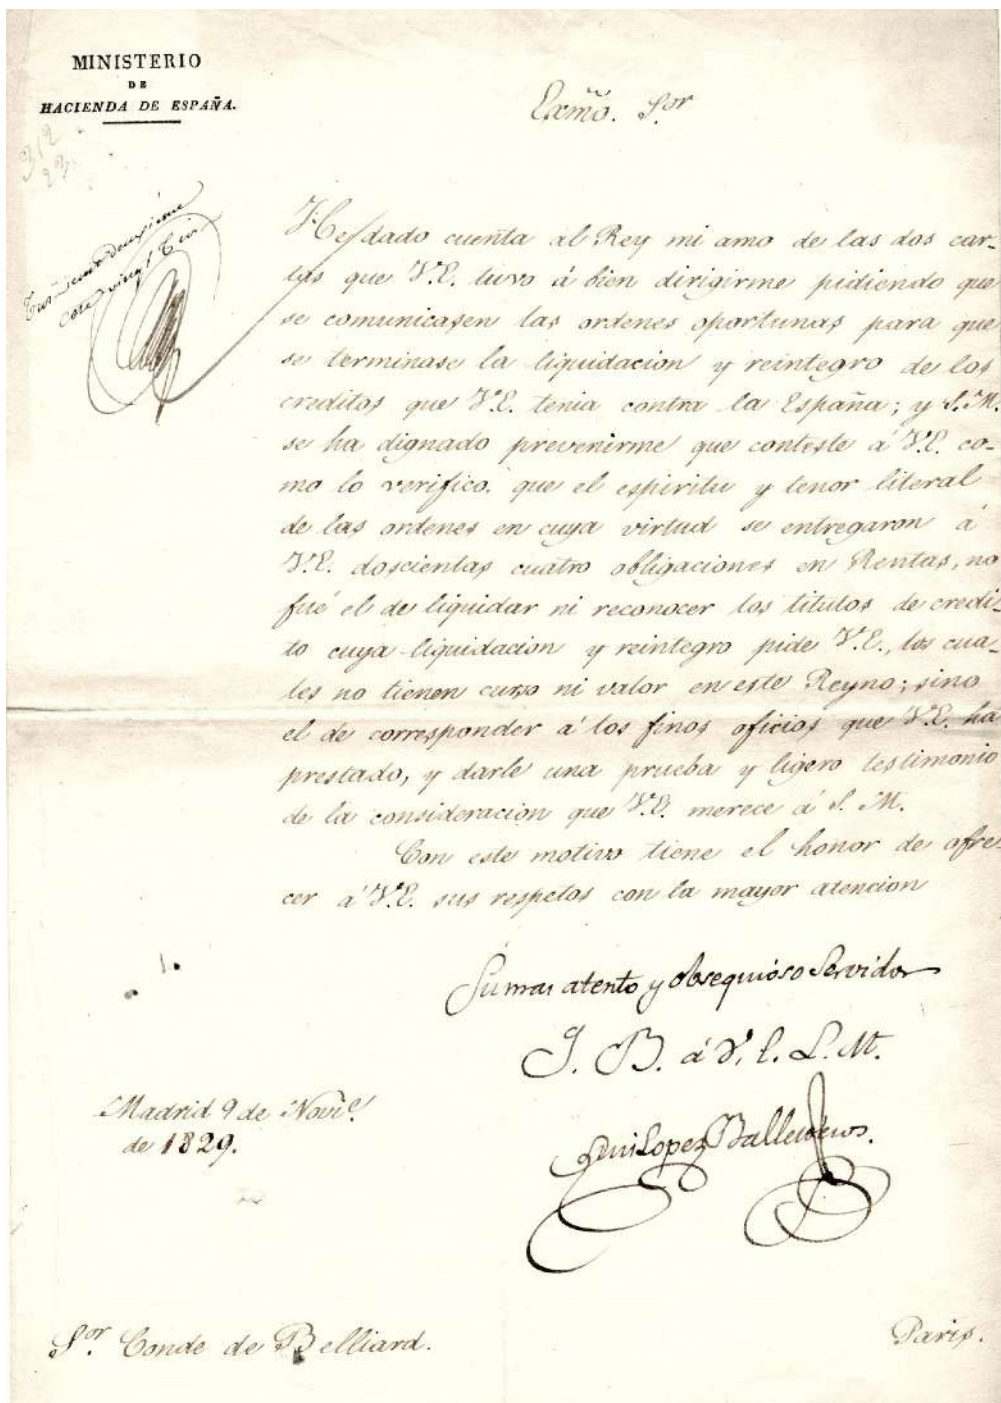 MINISTERIO
DE
HACIENDA DE ESPAÑA.
Exmõ. Sor
312
23
cote vingt trois
He dado cuenta al Rey mi amo de las dos car-
tas que V.E. tuvo á bien dirigirme pidiendo que
se comunicasen las ordenes oportunas para que
se terminase la liquidacion y reintegro de los
creditos que V.E. tenia contra la España; y S.M.
se ha dignado prevenirme que conteste á V.E. co-
mo lo verifico, que el espiritu y tenor literal
de las ordenes en cuya virtud se entregaron á
V.E. doscientas cuatro obligaciones en Rentas, no
fué el de liquidar ni reconocer los titulos de credi-
to cuya liquidacion y reintegro pide V.E., los cua-
les no tienen curso ni valor en este Reyno; sino
el de corresponder á los finos oficios que V.E. ha
prestado, y darle una prueba y ligero testimonio
de la consideracion que V.E. merece á S. M.
Con este motivo tiene el honor de ofre-
cer á V.E. sus respetos con la mayor atencion
Su mas atento y obsequioso Servidor
Q. B. á V. E. L. M.
Luis Lopez Ballesteros.
Madrid 9 de Novie.
de 1829.
Sor. Conde de Belliard.
Paris.